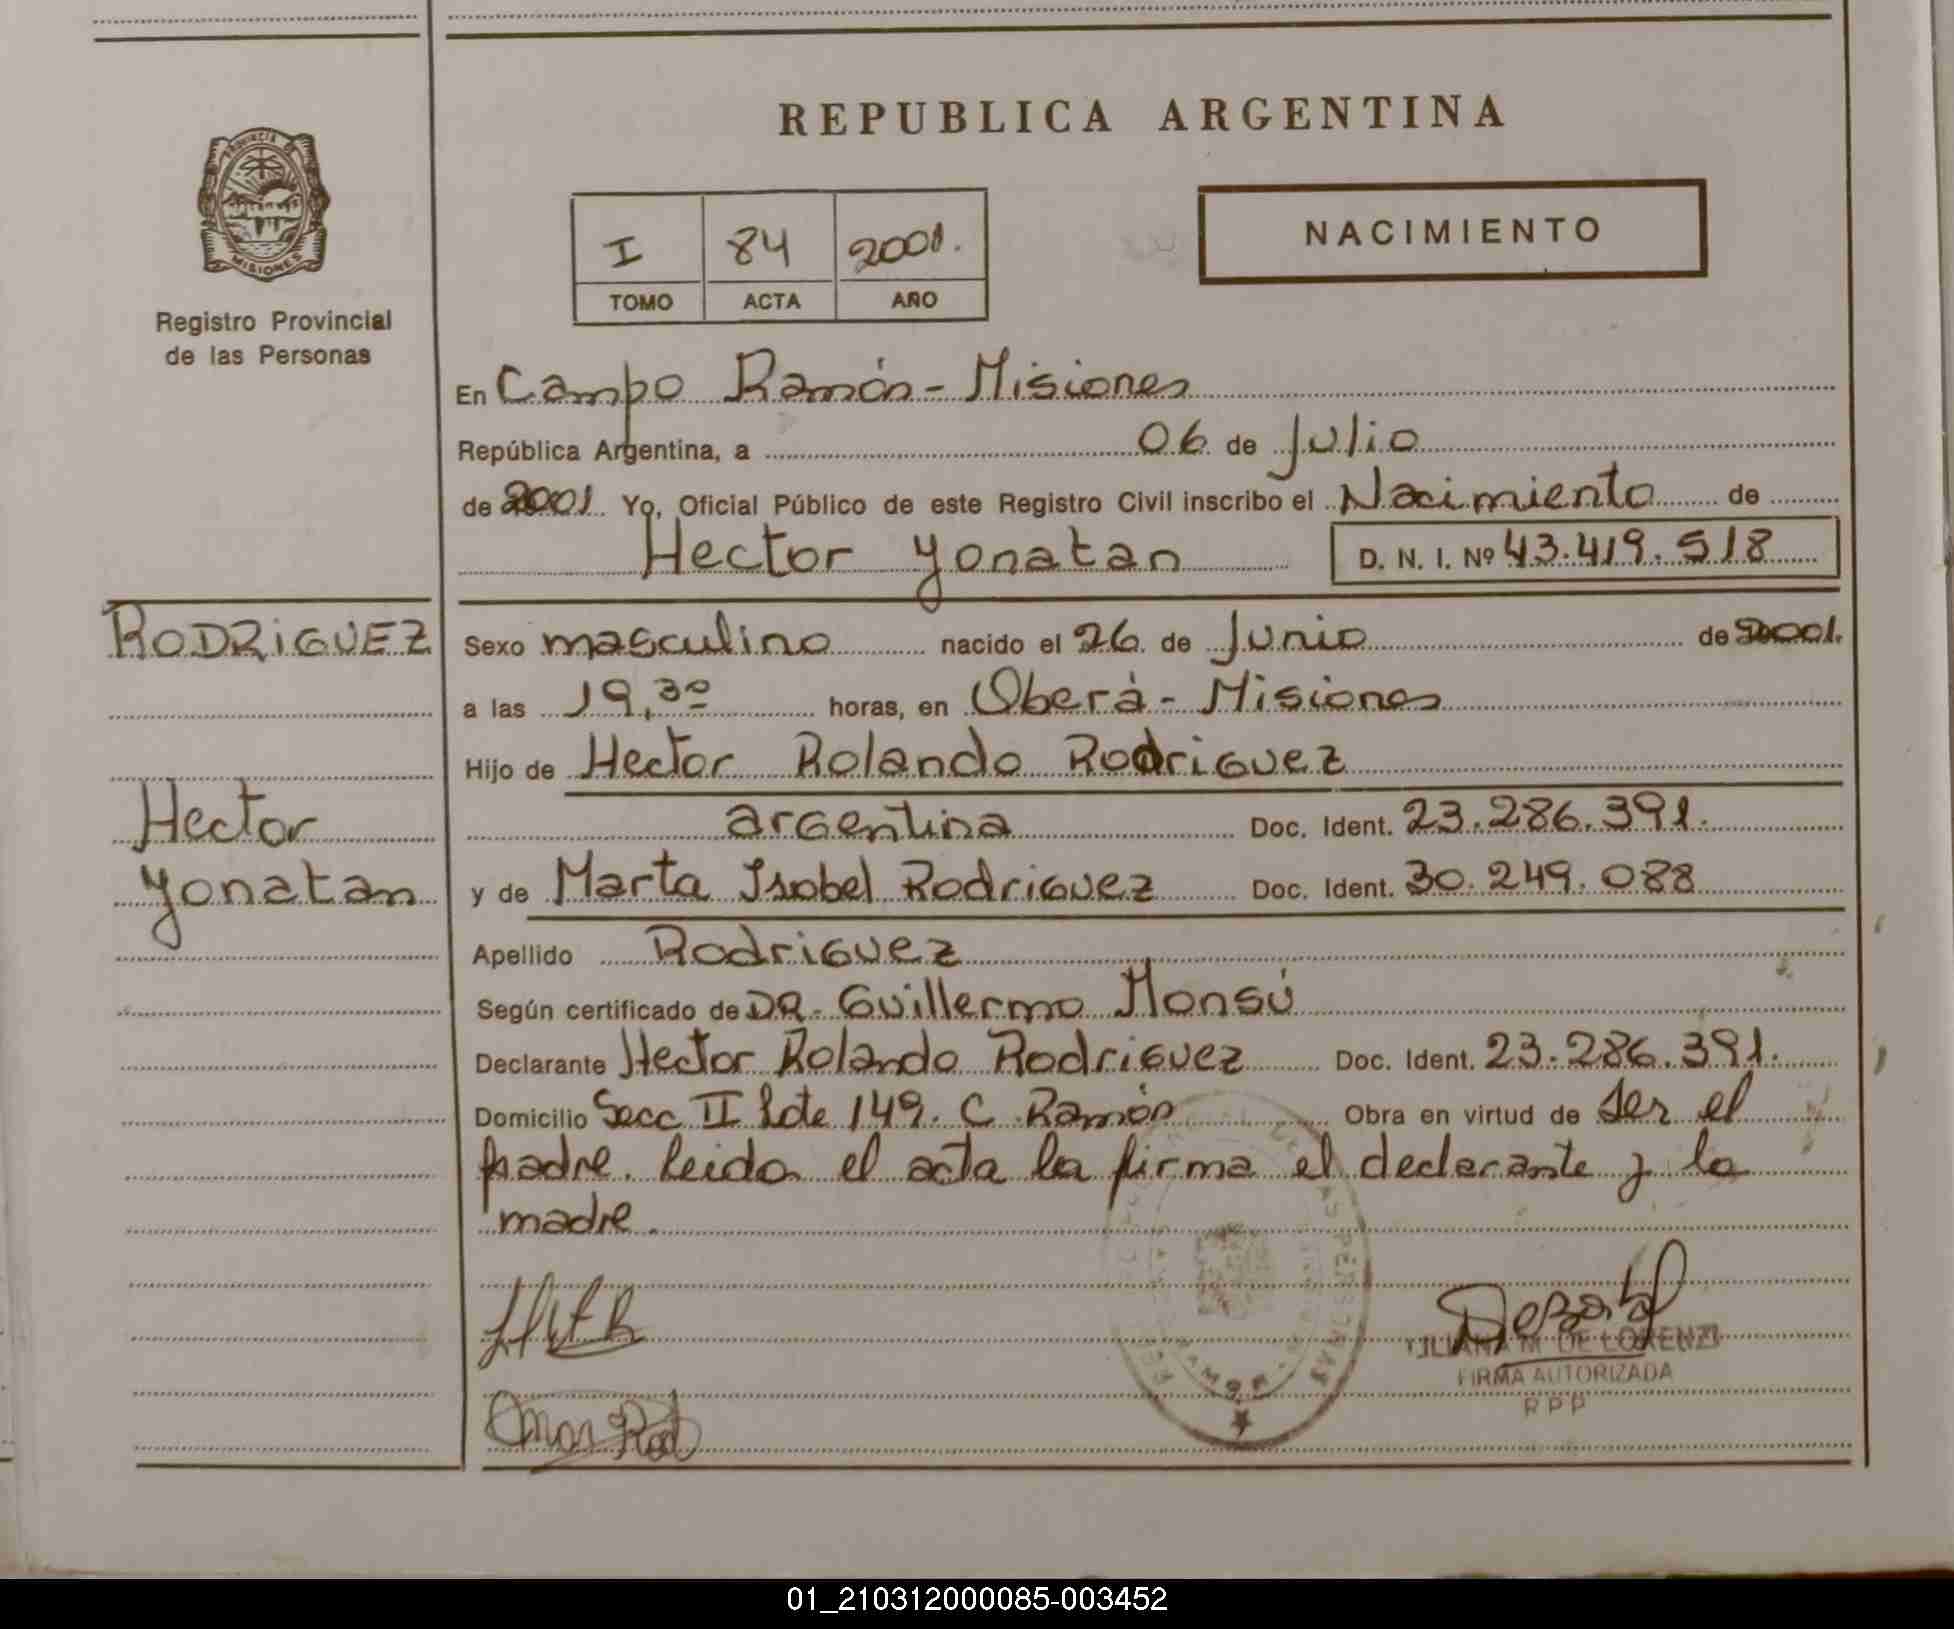 REPUBLICA ARGENTINA
PROVINCIA DE
MISIONES
Registro Provincial
de las Personas
I 84 2001.
TOMO ACTA AÑO
NACIMIENTO
En Campo Ramón - Misiones
República Argentina, a 06 de Julio
de 2001 Yo, Oficial Público de este Registro Civil inscribo el Nacimiento de
Hector Yonatan D. N. I. Nº 43.419.518
RODRIGUEZ
Hector
Yonatan
Sexo masculino nacido el 26 de Junio de 2001.
a las 19,30 horas, en Oberá - Misiones
Hijo de Hector Rolando Rodriguez
argentina Doc. Ident. 23.286.391.
y de Marta Isabel Rodriguez Doc. Ident. 30.249.088
Apellido Rodriguez
Según certificado de DR. Guillermo Monsú
Declarante Hector Rolando Rodriguez Doc. Ident. 23.286.391.
Domicilio Secc II Lote 149. C. Ramón Obra en virtud de ser el
padre. Leida el acta la firma el declarante y la
madre.
LILIANA M DE LORENZI
FIRMA AUTORIZADA
R P P
01_210312000085-003452